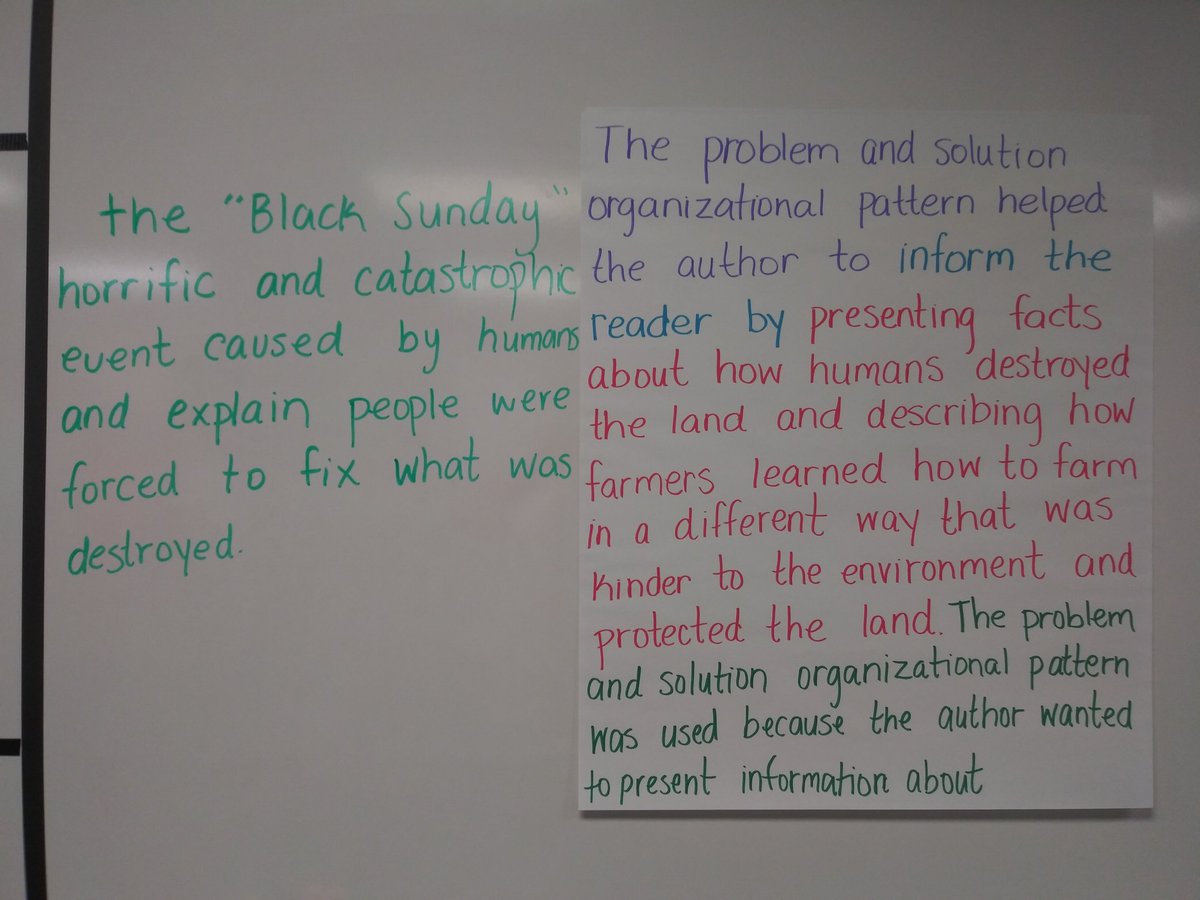 The problem and solution
organizational pattern helped
the author to inform the
reader by presenting facts
about how humans destroyed
the land and describing how
farmers learned how to farm
in a different way that was
kinder to the environment and
protected the land. The problem
and solution organizational pattern
was used because the author wanted
to present information about
the "Black Sunday"
horrific and catastrophic
event caused by humans
and explain people were
forced to fix what was
destroyed.